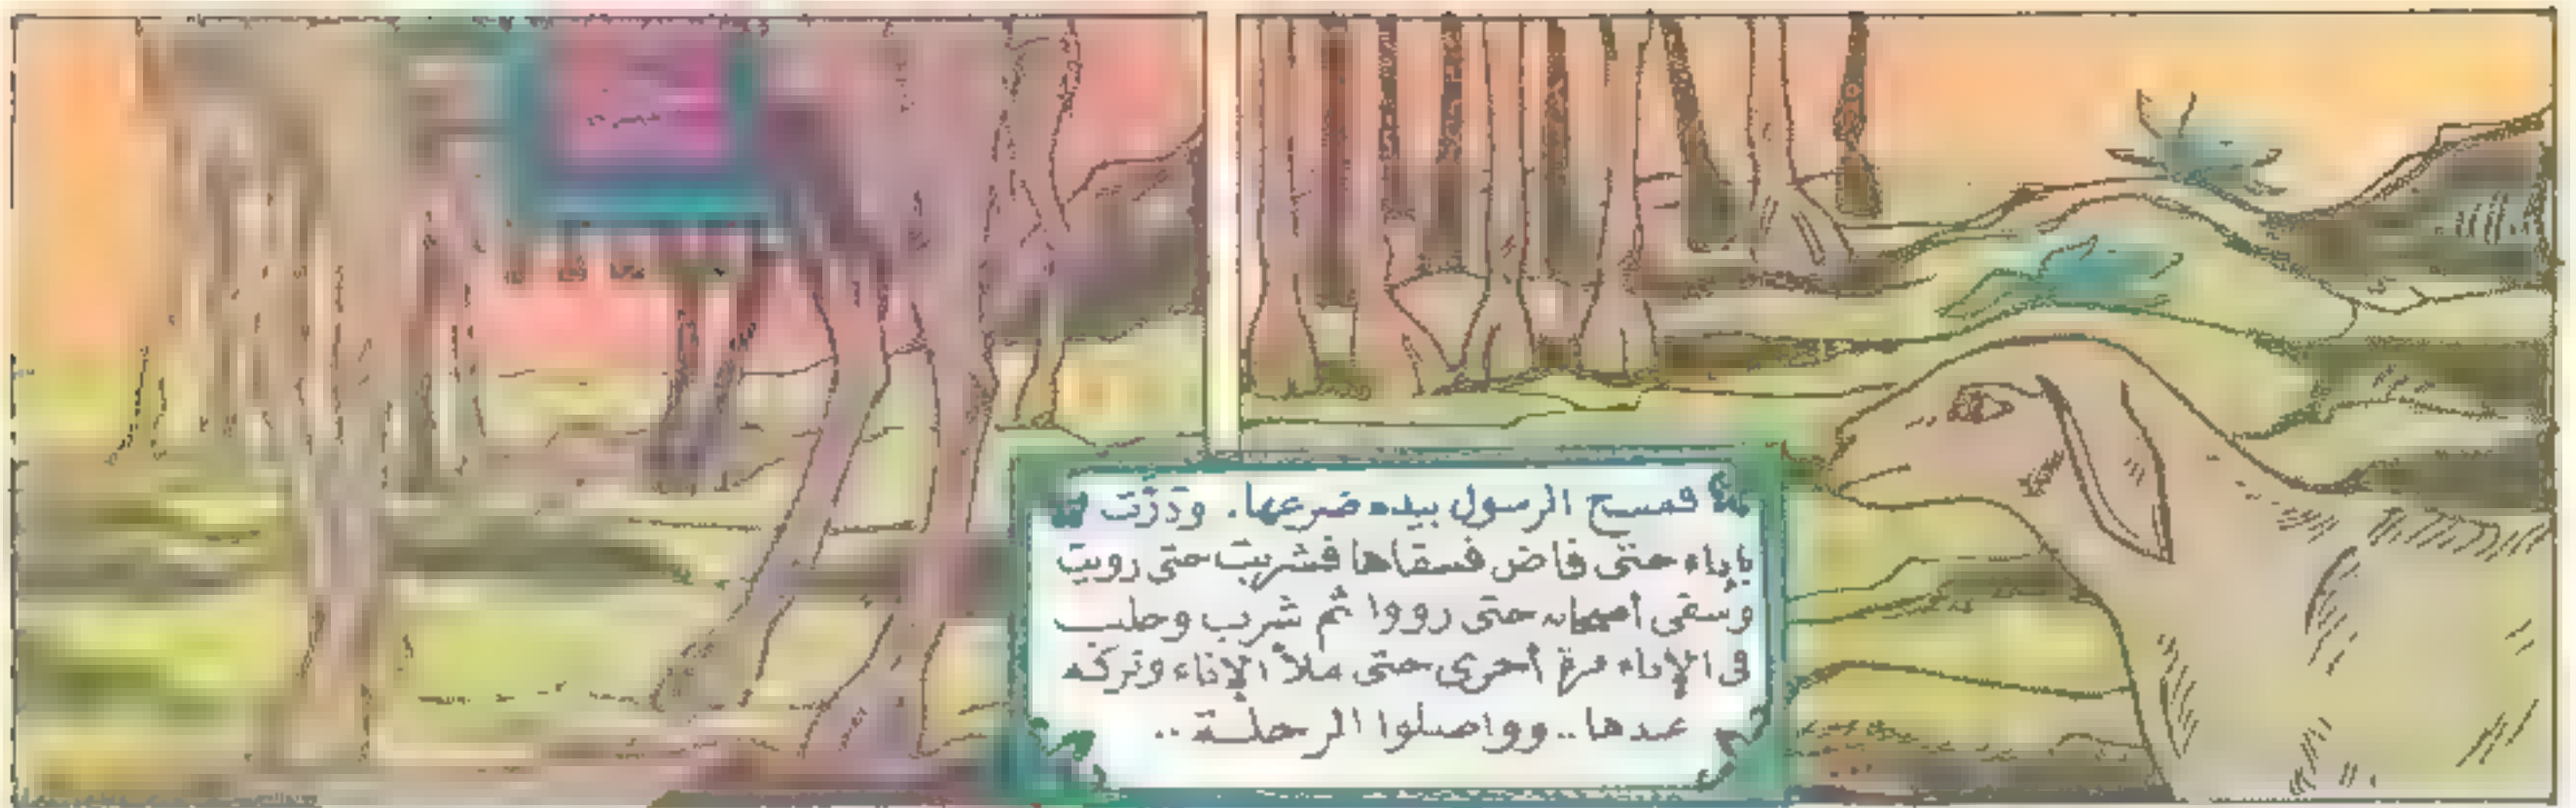 فمسح الرسول بيده ضرعها. ودرَّت
بإناء حتى فاض فسقاها فشربت حتى رويت
وسقى أصحابه حتى رووا ثم شرب وحلب
فى الإناء مرة أخرى حتى ملأ الإناء وتركه
عندها.. وواصلوا الرحلة..